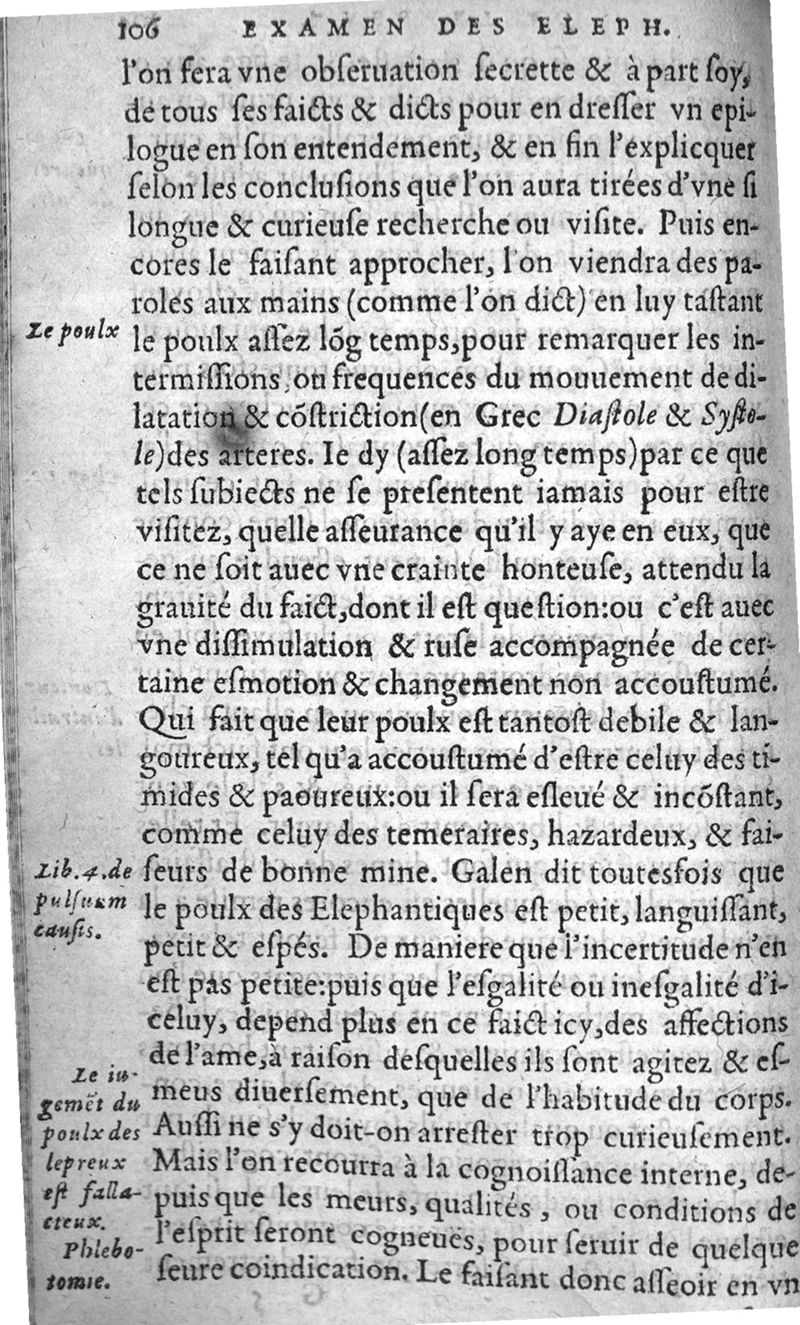 106 EXAMEN DES ELEPH.
l'on fera vne obſeruation ſecrette & à part ſoy,
de tous ſes faicts & dicts pour en dreſſer vn epi-
logue en ſon entendement, & en fin l'explicquer
ſelon les concluſions que l'on aura tirées d'vne ſi
longue & curieuſe recherche ou viſite. Puis en-
cores le faiſant approcher, l'on viendra des pa-
roles aux mains (comme l'on dict) en luy taſtant
Le poulx
le poulx aſſez lõg temps, pour remarquer les in-
termiſſions, ou frequences du mouuement de di-
latation & cõſtriction (en Grec Diaſtole & Syſto-
le) des arteres. Ie dy (aſſez long temps) par ce que
tels ſubiects ne ſe preſentent iamais pour eſtre
viſitez, quelle aſſeurance qu'il y aye en eux, que
ce ne ſoit auec vne crainte honteuſe, attendu la
grauité du faict, dont il eſt queſtion: ou c'eſt auec
vne diſſimulation & ruſe accompagnée de cer-
taine eſmotion & changement non accouſtumé.
Qui fait que leur poulx eſt tantoſt debile & lan-
goureux, tel qu'a accouſtumé d'eſtre celuy des ti-
mides & paoureux: ou il ſera eſleué & incõſtant,
comme celuy des temeraires, hazardeux, & fai-
ſeurs de bonne mine. Galen dit toutesfois que
Lib. 4. de
pulſuum
cauſis.
le poulx des Elephantiques eſt petit, languiſſant,
petit & eſpés. De maniere que l'incertitude n'en
eſt pas petite: puis que l'eſgalité ou ineſgalité d'i-
celuy, depend plus en ce faict icy, des affections
de l'ame, à raiſon deſquelles ils ſont agitez & eſ-
meus diuerſement, que de l'habitude du corps.
Le iu-
gemẽt du
poulx des
lepreux
eſt falla-
cieux.
Auſſi ne s'y doit-on arreſter trop curieuſement.
Mais l'on recourra à la cognoiſſance interne, de-
puis que les meurs, qualités, ou conditions de
l'eſprit ſeront cogneuës, pour ſeruir de quelque
Phlebo-
tomie.
ſeure coindication. Le faiſant donc aſſeoir en vn